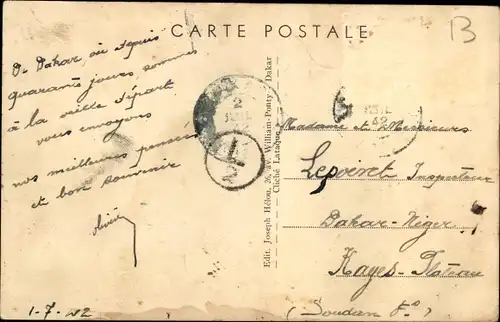 CARTE POSTALE
B
De Dakar, où depuis
quarante jours, sommes
à la veille départ
vous envoyons
nos meilleures pensées
et bon souvenir
1-7-42
Edit. Joseph Hélou, 26, av. William-Ponty, Dakar
Cliché Lataque
2
JUIL
42
Madame et Messieurs
Lepoivret Inspecteur
Dakar-Niger
Kayes-Plateau
(Soudan Fs)